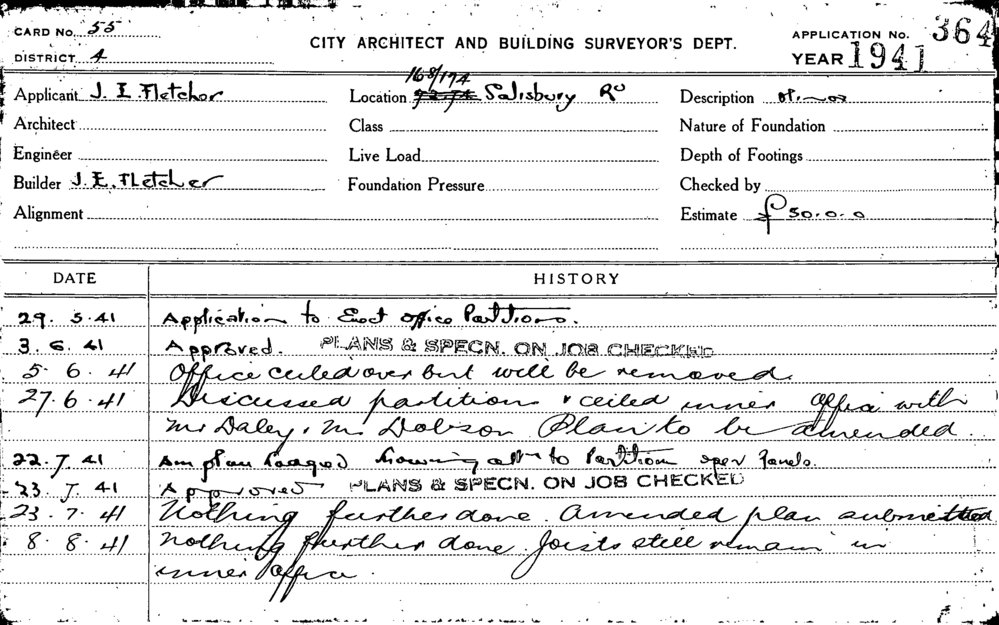 CARD No. 55
DISTRICT 4
CITY ARCHITECT AND BUILDING SURVEYOR'S DEPT.
APPLICATION No. 364
YEAR 1941
Applicant J. E. Fletcher
Location 168/174 Salisbury Rd
Description
Architect
Class
Nature of Foundation
Engineer
Live Load
Depth of Footings
Builder J. E. Fletcher
Foundation Pressure
Checked by
Alignment
Estimate £50.0.0
DATE
HISTORY
29. 5. 41 Application to Erect office Partitions.
3. 6. 41 Approved. PLANS & SPECN. ON JOB CHECKED
5. 6. 41 Office ceiled over but will be removed.
27. 6. 41 Discussed partitions & ceiled inner office with
Mr Daley, Mr Dobson Plan to be amended
22. 7. 41 Am plan showing to Partition open Panels.
23. 7. 41 Approved PLANS & SPECN. ON JOB CHECKED
23. 7. 41 Nothing further done. Amended plan submitted
8. 8. 41 Nothing further done. Joists still remain in
inner office.